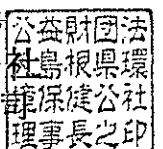 公益財団法
人島根県環
境保健公社
理事長之印
社
司